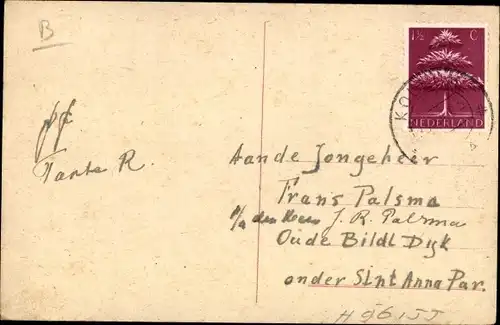 B
1½ C
NEDERLAND
KO
pf
Tante R.
Aan de Jongeheer
Frans Palsma
p/a den Heer J. R. Palsma
Oude Bildl Dyk
onder SInt Anna Par.
H 96155